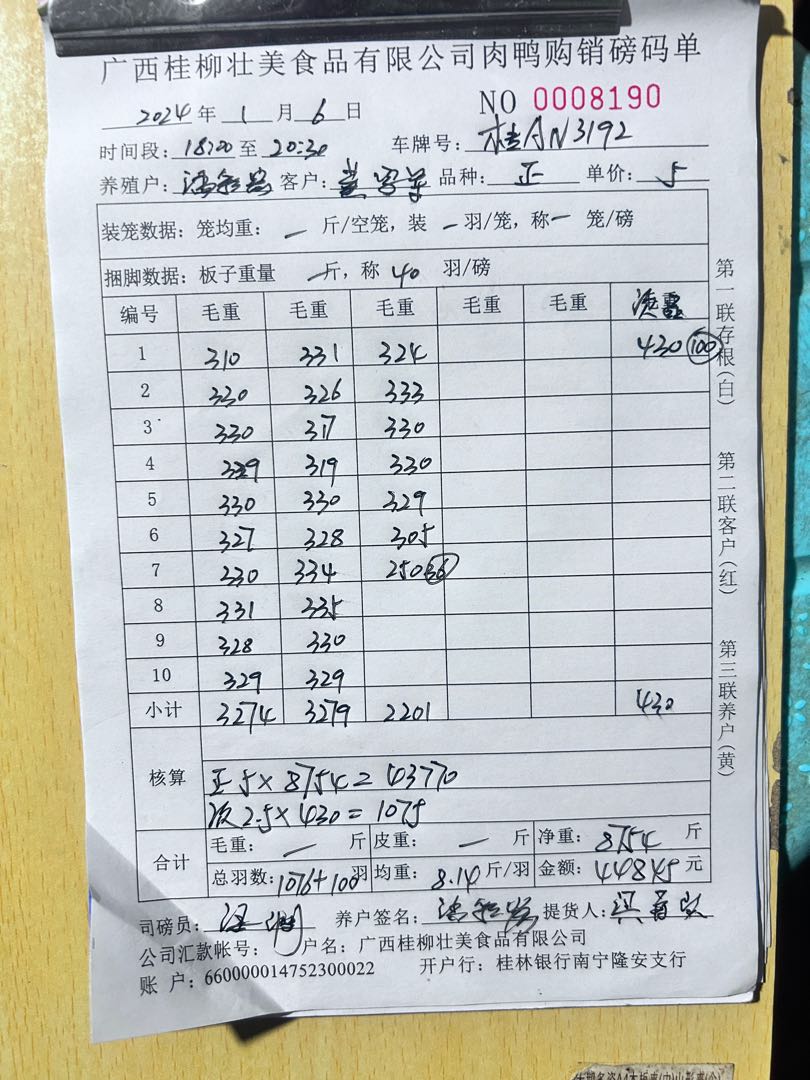 广西桂柳壮美食品有限公司肉鸭购销磅码单
2024 年 1 月 6 日 NO 0008190
时间段: 18:00 至 20:30 车牌号: 桂AN3192
养殖户: 客户: 品种: 正 单价: 5
装笼数据: 笼均重: — 斤/空笼, 装 — 羽/笼, 称 — 笼/磅
捆脚数据: 板子重量 — 斤, 称 40 羽/磅
编号 毛重 毛重 毛重 毛重 毛重
1 310 331 324 430 100
2 330 326 333
3 330 317 330
4 329 319 330
5 330 330 329
6 327 328 305
7 330 334 250 36
8 331 335
9 328 330
10 329 329
小计 3274 3279 2201 430
核算
正 5×8754=43770
次 2.5×430=1075
合计 毛重: — 斤 皮重: — 斤 净重: 8754 斤
总羽数: 1076+100 羽 均重: 8.14 斤/羽 金额: 44845 元
司磅员: 养户签名: 提货人:
公司汇款帐号: 户名: 广西桂柳壮美食品有限公司
账 户: 660000014752300022 开户行: 桂林银行南宁隆安支行
第一联存根(白)
第二联客户(红)
第三联养户(黄)